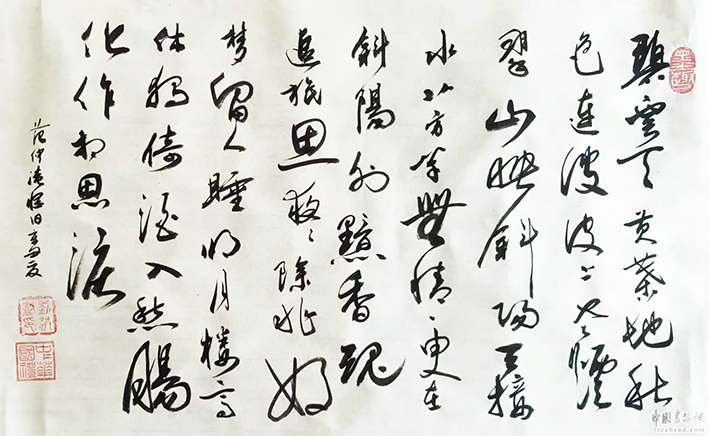 碧雲天黄葉地秋
色連波波上寒煙
翠山映斜陽天接
水芳草無情更在
斜陽外黯香魂
追旅思夜〻除非好
夢留人睡明月楼高
休獨倚酒入愁腸
化作相思淚
范仲淹懷旧
墨趣